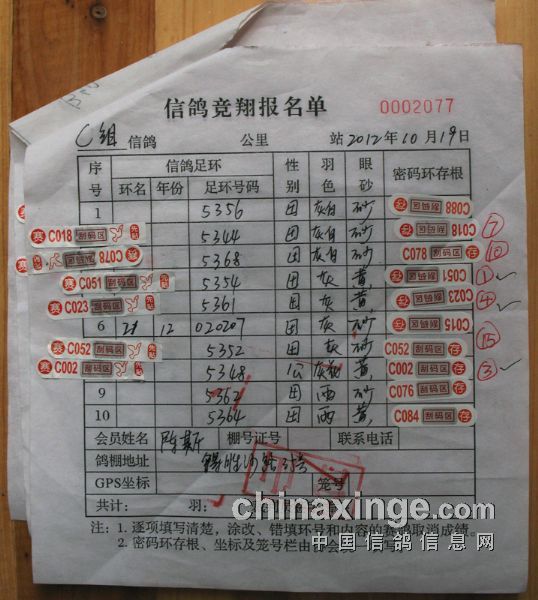 信鸽竞翔报名单
0002077
C组 信鸽 公里 站2012年10月19日
序号 信鸽足环 性别 羽色 眼砂 密码环存根
环名 年份 足环号码
1 5356 灰白 砂 C088
赛 C018 刮码区 5344 灰白 砂 C018 刮码区 ⑦
赛 C078 刮码区 5368 灰白 砂 C078 刮码区 存 ⑩
赛 C051 刮码区 5354 灰 黄 C051 刮码区 ① ✓
赛 C023 刮码区 5361 灰 黄 C023 刮码区 ④ ✓
6 12 020207 灰 砂 C015 刮码区 ⑮
赛 C052 刮码区 5352 灰 砂 C052 刮码区 存
赛 C002 刮码区 5348 公 黄 C002 刮码区 存 ③ ✓
9 5362 雨 砂 C076 刮码区 存
10 5364 雨 黄 C084 刮码区 存
会员姓名 陈斯 棚号证号 联系电话
鸽棚地址
GPS坐标 笼号
共计: 羽:
chinaxinge.com
注: 1. 逐项填写清楚，涂改、错填环号和内容的赛鸽取消成绩。
2. 密码环存根、坐标及笼号栏由协会
中国信鸽信息网